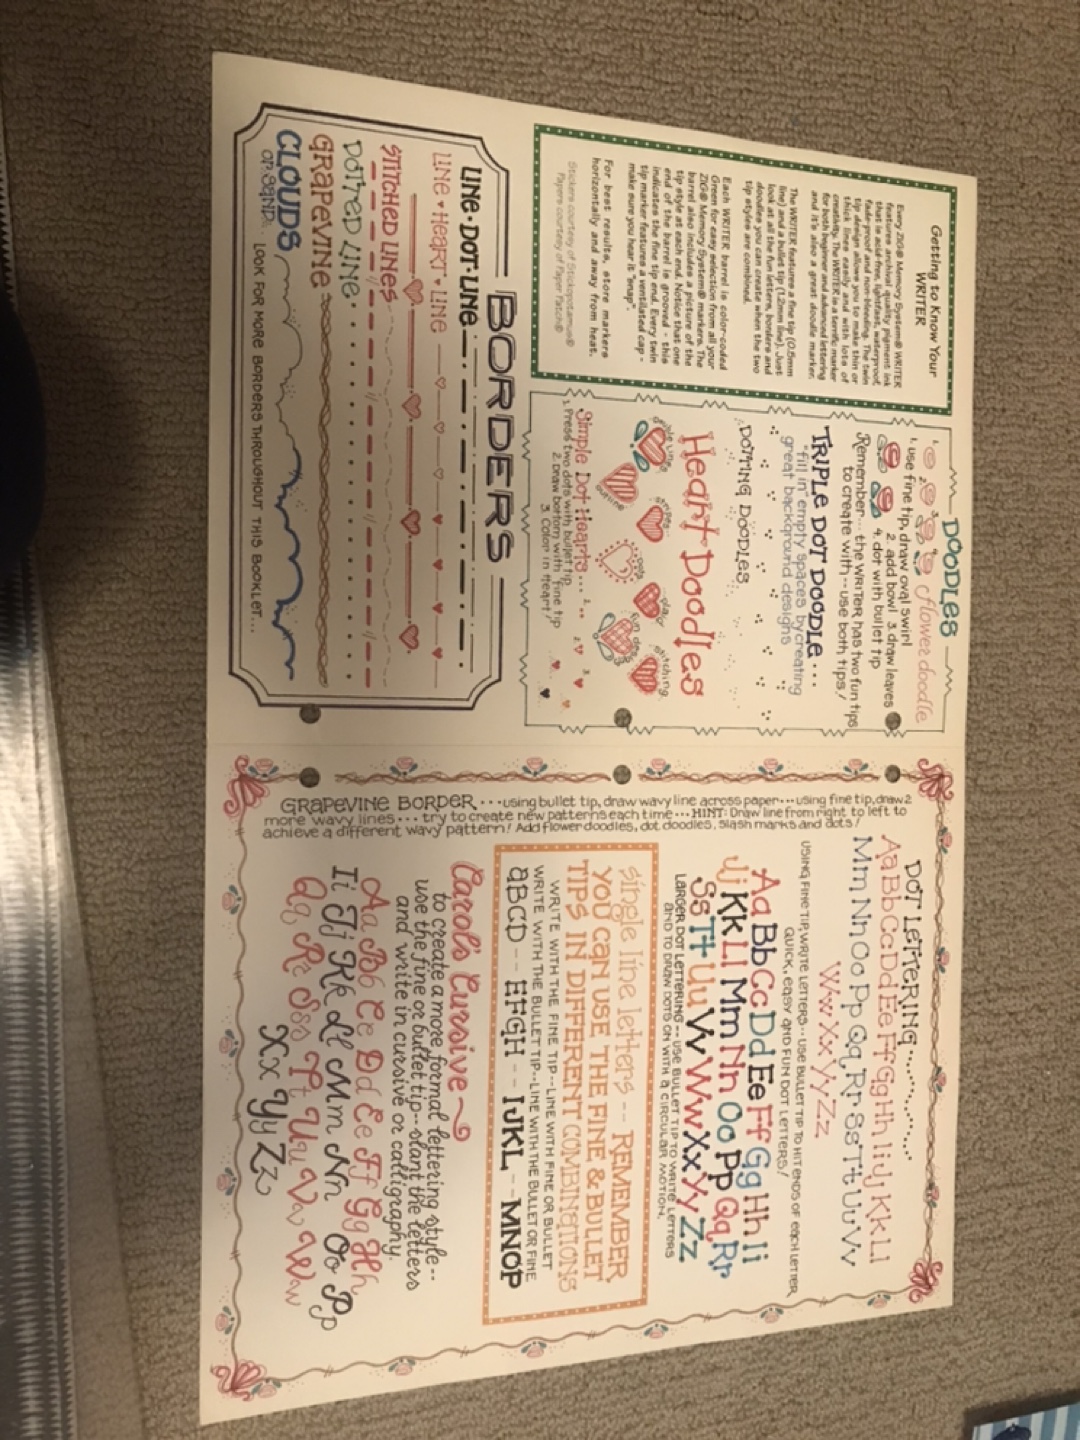 Getting to Know Your
WRITER
Every ZIG® Memory System® WRITER
features archival quality pigment ink
that is acid-free, lightfast, waterproof,
fade-proof and non-bleeding. The twin
tip design allows you to make thin or
thick lines easily and with lots of
creativity. The WRITER is a terrific marker
for both beginner and advanced lettering
and it's also a great doodle marker.
The WRITER features a fine tip (0.5mm
line) and a bullet tip (1.2mm line). Just
look at all the fun letters, borders and
doodles you can create when the two
tip styles are combined.
Each WRITER barrel is color-coded
Green for easy selection from all your
ZIG® Memory System® markers. The
barrel also includes a picture of the
tip style at each end. Notice that one
end of the barrel is grooved - this
indicates the fine tip end. Every twin
tip marker features a ventilated cap -
make sure you hear it "snap".
For best results, store markers
horizontally and away from heat.
Stickers courtesy of Stickopotamus®
Papers courtesy of Paper Patch®
DOODLES
flower doodle
1. use fine tip, draw oval swirl
2. add bowl 3. draw leaves
4. dot with bullet tip
Remember... the WRITER has two fun tips
to create with -- use both tips!
TRIPLE DOT DOODLE...
"fill in" empty spaces by creating
great background designs
DOTTING DOODLES
Heart Doodles
double line
outline
stripes
dots
plaid
fun dee
stitching
Simple Dot Hearts...
1. Press two dots with bullet tip
2. Draw bottom with fine tip
3. Color in heart!
BORDERS
LINE·DOT·LINE
LINE ♥ HEART ♥ LINE
STITCHED LINES
DOTTED LINE
GRAPEVINE
CLOUDS
or SAND
LOOK FOR MORE BORDERS THROUGHOUT THIS BOOKLET...
GRAPEVINE BORDER...using bullet tip, draw wavy line across paper...using fine tip, draw 2
more wavy lines... try to create new patterns each time... HINT: Draw line from right to left to
achieve a different wavy pattern! Add flower doodles, dot doodles, slash marks and dots!
DOT LETTERING...
Aa Bb Cc Dd Ee Ff Gg Hh Ii Jj Kk Ll
Mm Nn Oo Pp Qq Rr Ss Tt Uu Vv
Ww Xx Yy Zz
USING FINE TIP, WRITE LETTERS -- USE BULLET TIP TO HIT ENDS OF EACH LETTER
QUICK, EASY AND FUN DOT LETTERS!
Aa Bb Cc Dd Ee Ff Gg Hh Ii
Jj Kk Ll Mm Nn Oo Pp Qq Rr
Ss Tt Uu Vv Ww Xx Yy Zz
LARGER DOT LETTERING -- USE BULLET TIP TO WRITE LETTERS
AND TO DRAW DOTS ON WITH A CIRCULAR MOTION.
single line letters -- REMEMBER
YOU CAN USE THE FINE & BULLET
TIPS IN DIFFERENT COMBINATIONS
WRITE WITH THE FINE TIP--LINE WITH FINE OR BULLET
WRITE WITH THE BULLET TIP--LINE WITH THE BULLET OR FINE
ABCD -- EFGH -- IJKL -- MNOP
Carol's Cursive
to create a more formal lettering style--
use the fine or bullet tip--slant the letters
and write in cursive or calligraphy.
Aa Bb Cc Dd Ee Ff Gg Hh
Ii Jj Kk Ll Mm Nn Oo Pp
Qq Rr Sss Tt Uu Vv Ww
Xx Yy Zz